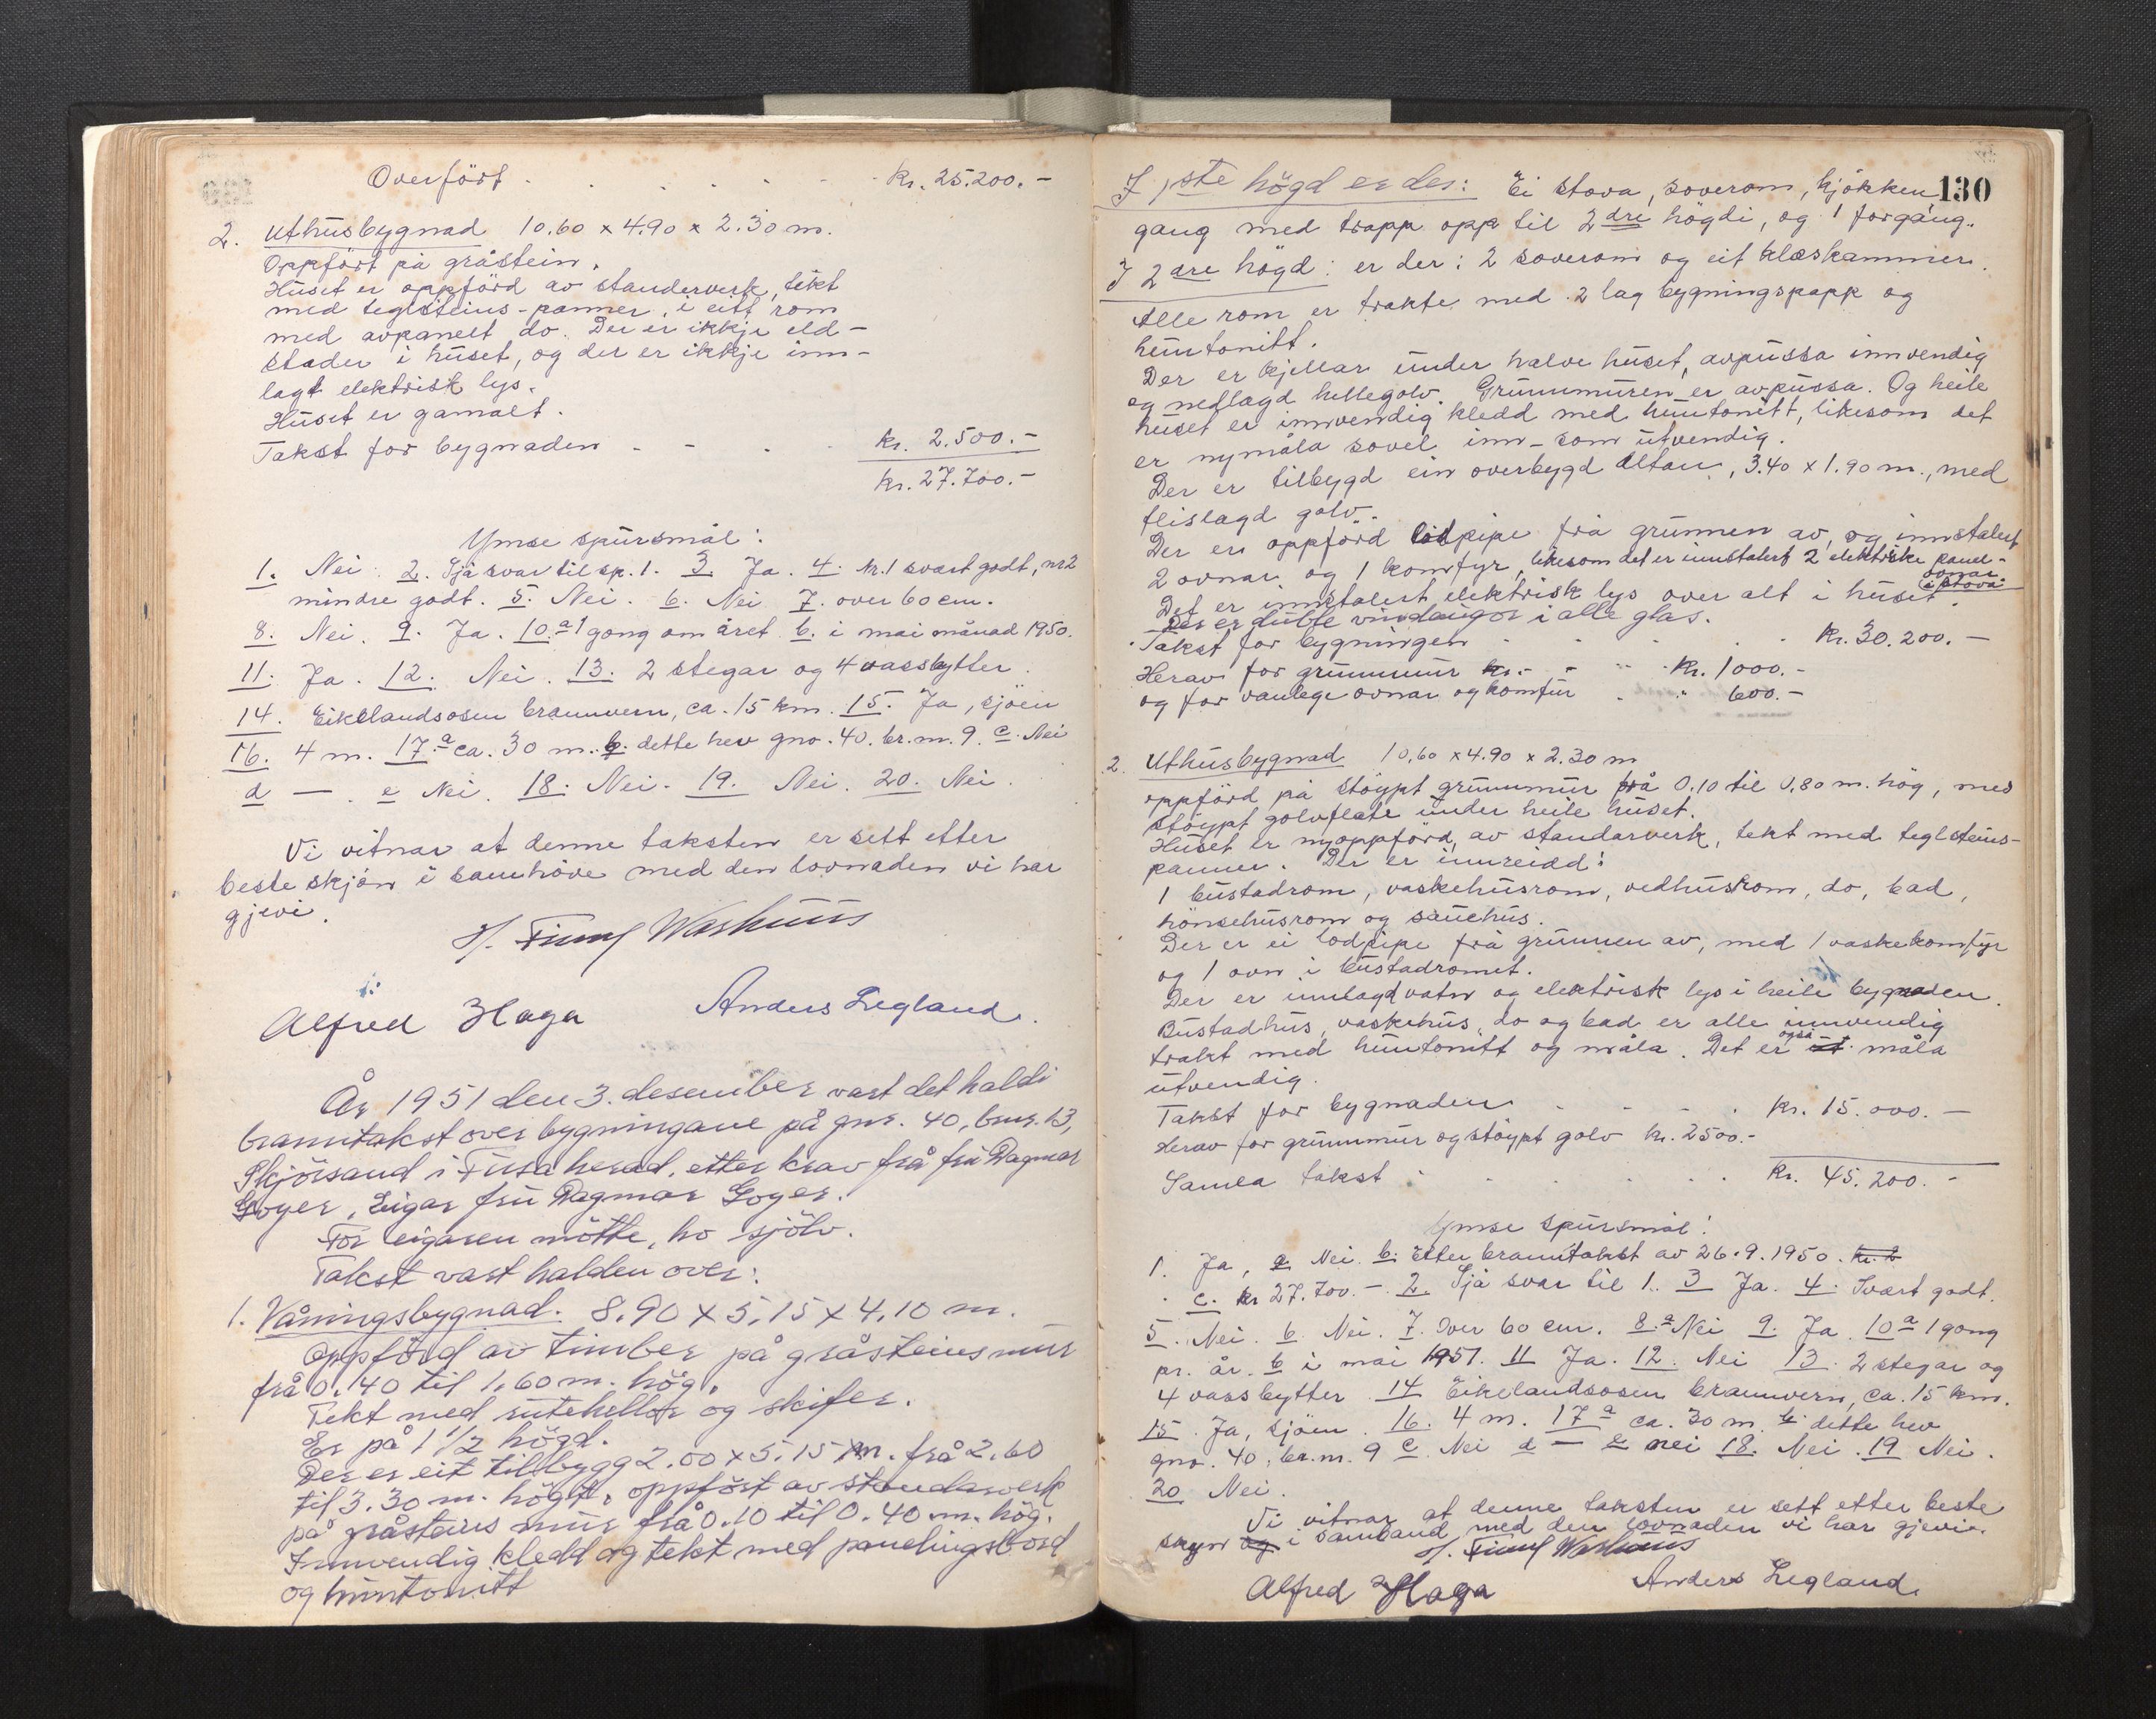 Overfört . . . . . . kr. 25.200.-
2. Uthusbygnad 10.60 x 4.90 x 2.30 m.
Oppfört på gråstein.
Huset er oppförd av standerverk, tekt
med teglsteins-panner, i eitt rom
med avpanelt do. Der er ikkje eld-
stader i huset, og der er ikkje inn-
lagt elektrisk lys.
Huset er gamalt.
Takst for bygnaden - - . . kr. 2.500.-
kr. 27.700.-
Ymse spursmål:
1. Nei. 2. Sjå svar til sp. 1. 3. Ja. 4. Nr. 1 svært godt, nr 2
mindre godt. 5. Nei. 6. Nei 7. over 60 cm.
8. Nei. 9. Ja. 10.a 1 gong om året b. i mai månad 1950.
11. Ja. 12. Nei. 13. 2 stegar og 4 vassbytter.
14. Eikelandsosen brannvern, ca. 15 km. 15. Ja, sjöen
16. 4 m. 17.a ca. 30 m. b. dette hev gno. 40. br.m. 9. c. Nei
d — . e Nei. 18. Nei. 19. Nei. 20. Nei.
Vi vitnar at denne taksten er sett etter
beste skjön i samhöve med den lovnaden vi har
gjevi.
Alfred Haga Anders Legland.
År 1951 den 3. desember vart det haldi
branntakst over bygningane på gnr. 40, bnr. 13,
Skjörsand i Fusa herad, etter krav frå frú Dagmar
Goyer, Eigar frú Dagmar Goyer.
For eigaren mötte, ho sjölv.
Takst vart halden over:
1. Våningsbygnad. 8.90 x 5.15 x 4.10 m.
Oppförd av timber på gråsteinsmur
frå 0.140 til 1.60 m. hög.
Tekt med rutehellor og skifer.
Er på 1 1/2 högd.
Der er eit tilbygg 2.00 x 5.15 m. frå 2.60
til 3.30 m. högt, oppfört av standerverk
på gråsteins mur frå 0.10 til 0.40 m. hög.
Innvendig kledd og tekt med panelingsbord
og huntonitt
130
I 1ste högd er der: Ei stova, soverom, kjökken,
gang med trapp opp til 2dre högdi, og 1 forgang.
I 2dre högd: er der: 2 soverom og eit klæskammer.
Alle rom er trakte med 2 lag bygningspapp og
huntonitt.
Der er kjellar under halve huset, avpussa innvendig
og nedlagd hellegolv. Grunnmuren er avpussa. Og heile
huset er innvendig kledd med huntonitt, likesom det
er nymåla sovel inn- som utvendig.
Der er tilbygd ein overbygd altan, 3.40 x 1.90 m., med
fleislagd golv.
Der er oppförd lodpipe frå grunnen av, og innstalert
2 ovnar og 1 komfyr, likesom det er innstalert 2 elektriske panel-
ovnar
i stova.
Det er innstalert elektrisk lys over alt i huset.
Der er duble vindaugor i alle glas.
Takst for bygningen . . . . . kr. 30.200.-
Herav for grunnmur kr. - - " kr. 1000.-
og for vanlege ovnar og komfur . . " 600.-
2. Uthusbygnad 10.60 x 4.90 x 2.30 m
oppförd på stöypt grunnmur frå 0.10 til 0.80 m. hög, med
stöypt golvflate under heile huset.
Huset er nyoppförd, av standarverk, tekt med teglsteins-
panner. Der er innreidd:
1 bustadrom, vaskehusrom, vedhusrom, do, bad,
hönsehusrom og sauehus.
Der er ei lodpipe frå grunnen av, med 1 vaskekomfyr
og 1 ovn i bustadromet.
Der er innlagd vatn og elektrisk lys i heile bygnaden.
Bustadhus, vaskehus, do og bad er alle innvendig
trakt med huntonitt og måla. Det er også måla
utvendig.
Takst for bygnaden . - - . . kr. 15.000.-
Herav for grunnmur og stöypt golv kr. 2500.-
Samla takst . . . . . kr. 45.200.-
Ymse spursmål:
1. Ja, a Nei. b. Etter branntakst av 26.9.1950. kr. 2
c. kr 27.700.- 2. Sjå svar til 1. 3 Ja. 4. Svært godt.
5. Nei. 6 Nei. 7. Over 60 cm. 8.a Nei 9. Ja. 10a 1 gong
pr. år. b i mai 1951. 11 Ja. 12. Nei 13. 2 stegar og
4 vassbytter 14 Eikelandsosen brannvern, ca. 15 km.
15. Ja, sjöen. 16. 4 m. 17a ca. 30 m. b dette hev
gno. 40. br.m. 9 c Nei d — e nei 18. Nei. 19 Nei.
20 Nei.
Vi vitnar at denne taksten er sett etter beste
skyn og i samband med den lovnaden vi har gjevi.
Alfred Haga Anders Legland.